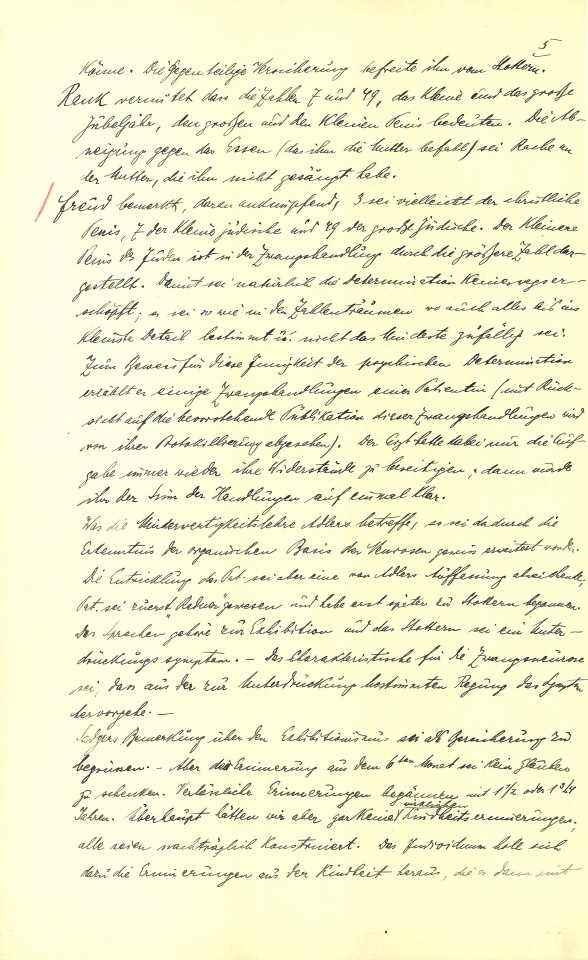 5
Könne. Die gegenteilige Versicherung befreite ihn vom Stottern.
Rank vermutet dass die Zahlen 7 und 49, das kleine und das große
Jubeljahr, den großen und den kleinen Penis bedeuten. Die Ab-
neigung gegen das Essen (das ihm die Mutter befahl) sei Rache an
der Mutter, die ihn nicht gesäugt habe.
Freud bemerkt, daran anknüpfend, 3 sei vielleicht der christliche
Penis, 7 der kleine jüdische und 49 der große jüdische. Der kleinere
Penis des Juden ist in der Zwangshandlung durch die größere Zahl dar-
gestellt. Damit sei natürlich die Determination keineswegs er-
schöpft; es sei so wie in den Zahlenträumen wo auch alles bis ins
kleinste Detail bestimmt u. nicht das Mindeste zufällig sei.
Zum Beweis für diese Innigkeit der psychischen Determination
erzählt er einige Zwangshandlungen einer Patientin (mit Rück-
sicht auf die bevorstehende Publikation dieser Zwangshandlungen wird
von ihrer Protokollierung abgesehen). Der Arzt hatte dabei nur die Auf-
gabe immer wieder ihre Widerstände zu beseitigen; dann wurde
ihr der Sinn der Handlungen auf einmal klar.
Was die Minderwertigkeitslehre Adlers betreffe, so sei dadurch die
Erkenntnis der organischen Basis der Neurosen gewiss erweitert worden.
Die Entwicklung des Pat. sei aber eine von Adlers Auffassung abweichende;
Pat. sei zuerst "Redner" gewesen und habe erst später zu stottern begonnen.
Das Sprechen gehöre zur Exhibition und das Stottern sei ein Unter-
drückungssymptom. – Das Charakteristische für die Zwangsneurose
sei, dass aus der zur Unterdrückung bestimmten Regung das Symptom
hervorgehe. –
Sadgers Bemerkung über den Exhibitionismus sei als Bereicherung zu
begrüssen. – Aber der Erinnerung aus dem 6ten Monat sei kein Glauben
zu schenken. Verlässliche Erinnerungen begännen mit 1 1/2 oder 1 3/4
Jahren. Überhaupt hätten wir aber gar keine wirklichen Kindheitserinnerungen;
alle seien nachträglich konstruiert. Das Individuum holt sich
dazu die Erinnerungen aus der Kindheit heraus, die es dann mit